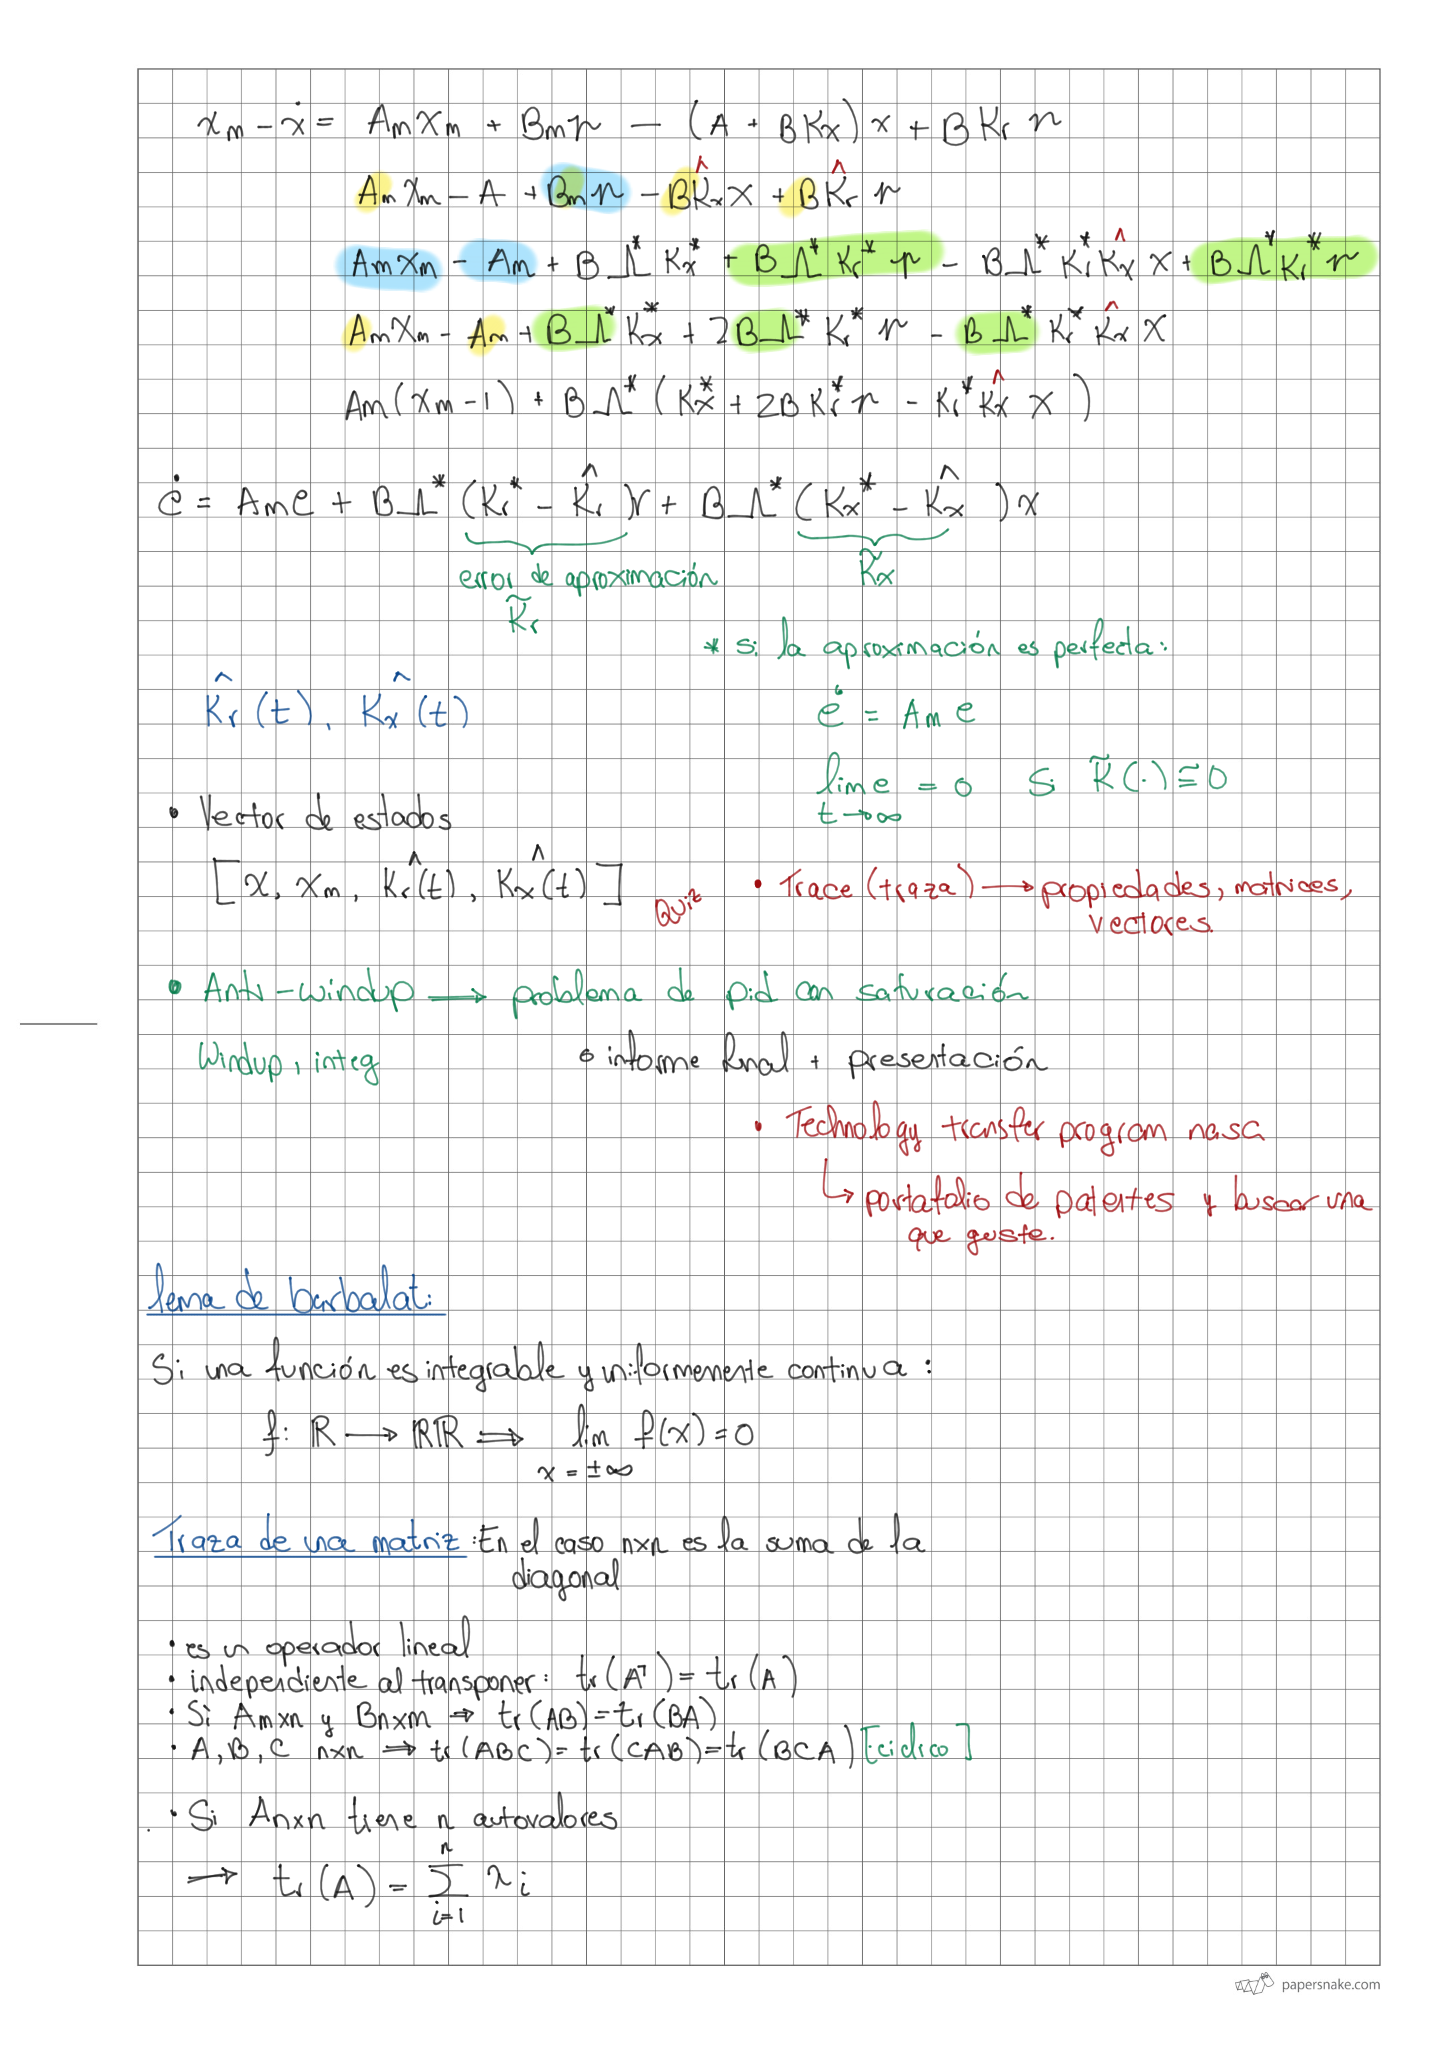 xm − ẋ = Am Xm + Bm r − (A + BKx) x + B Kr r
Am Xm − A + Bm r − B K̂x x + B K̂r r
Am Xm − Am + B Λ* Kx* + B Λ* Kr* r − B Λ* Kr* K̂x x + B Λ* Kr* r
Am Xm − Am + B Λ* Kx* + 2 B Λ* Kr* r − B Λ* Kr* K̂x X
Am (Xm − 1) + B Λ* (Kx* + 2B Kr* r − Kr* K̂x X )
ė = Am e + B Λ* (Kr* − K̂r ) r + B Λ* (Kx* − K̂x ) x
error de aproximación K̃x
K̃r
* si la aproximación es perfecta:
K̂r (t), K̂x (t)
ė = Am e
lim e = 0 Si K̃(·) ≅ 0
t → ∞
• Vector de estados
[ x, xm, K̂r(t), K̂x(t) ]
Quiz
• Trace (traza) → propiedades, matrices,
vectores.
• Anti-windup → problema de pid con saturación
Windup, integ
• informe final + presentación
• Technology transfer program nasa
↳ portafolio de patentes y buscar una
que guste.
lema de barbalat:
Si una función es integrable y uniformemente continua :
f: ℝ → ℝℝ ⟹ lim f(x) = 0
x = ±∞
Traza de una matriz : En el caso nxn es la suma de la
diagonal
• es un operador lineal
• independiente al transponer: tr (Aᵀ) = tr (A)
• Si Amxn y Bnxm ⇒ tr (AB) = tr (BA)
• A, B, C nxn ⇒ tr (ABC) = tr (CAB) = tr (BCA) [ciclico]
• Si Anxn tiene n autovalores
→ tr (A) = Σ λi
n
i=1
papersnake.com